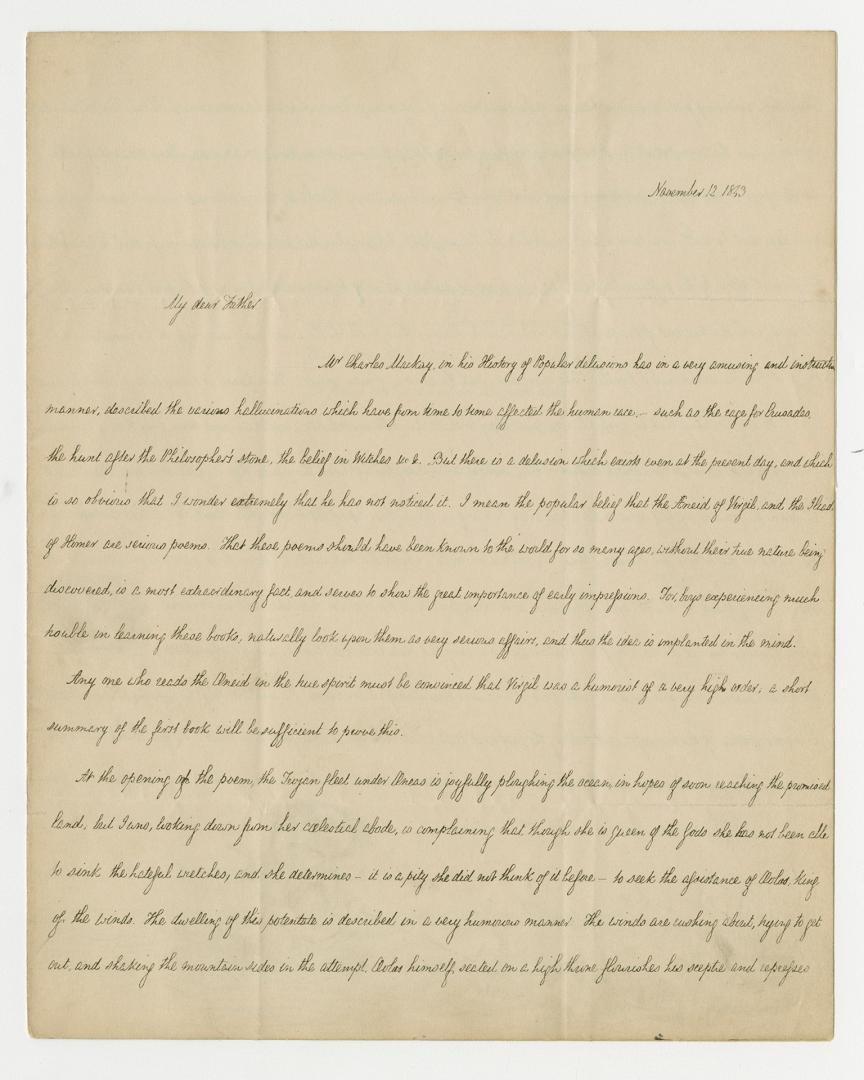 November 12 1843
My dear Father
Mr Charles Mackay, in his History of Popular delusions has in a very amusing and instructive
manner, described the various hallucinations which have from time to time affected the human race, – such as the rage for Crusades,
the hunt after the Philosopher's stone, the belief in Witches &c &c. But there is a delusion which exists even at the present day, and which
is so obvious that I wonder extremely that he has not noticed it. I mean the popular belief that the Æneid of Virgil, and the Iliad
of Homer are serious poems. That these poems should have been known to the world for so many ages, without their true nature being
discovered, is a most extraordinary fact, and serves to show the great importance of early impressions. For, boys experiencing much
trouble in learning these books, naturally look upon them as very serious affairs, and thus the idea is implanted in the mind.
Any one who reads the Æneid in the true spirit must be convinced that Virgil was a humorist of a very high order; a short
summary of the first book will be sufficient to prove this.
At the opening of the poem, the Trojan fleet under Æneas is joyfully ploughing the ocean, in hopes of soon reaching the promised
land, but Juno, looking down from her cœlestial abode, is complaining that though she is Queen of the Gods she has not been able
to sink the hateful wretches, and she determines – it is a pity she did not think of it before – to seek the assistance of Æolus, King
of the winds. The dwelling of this potentate is described in a very humorous manner. The winds are rushing about, trying to get
out, and shaking the mountain sides in the attempt. Æolus himself, seated on a high throne flourishes his sceptre and represses